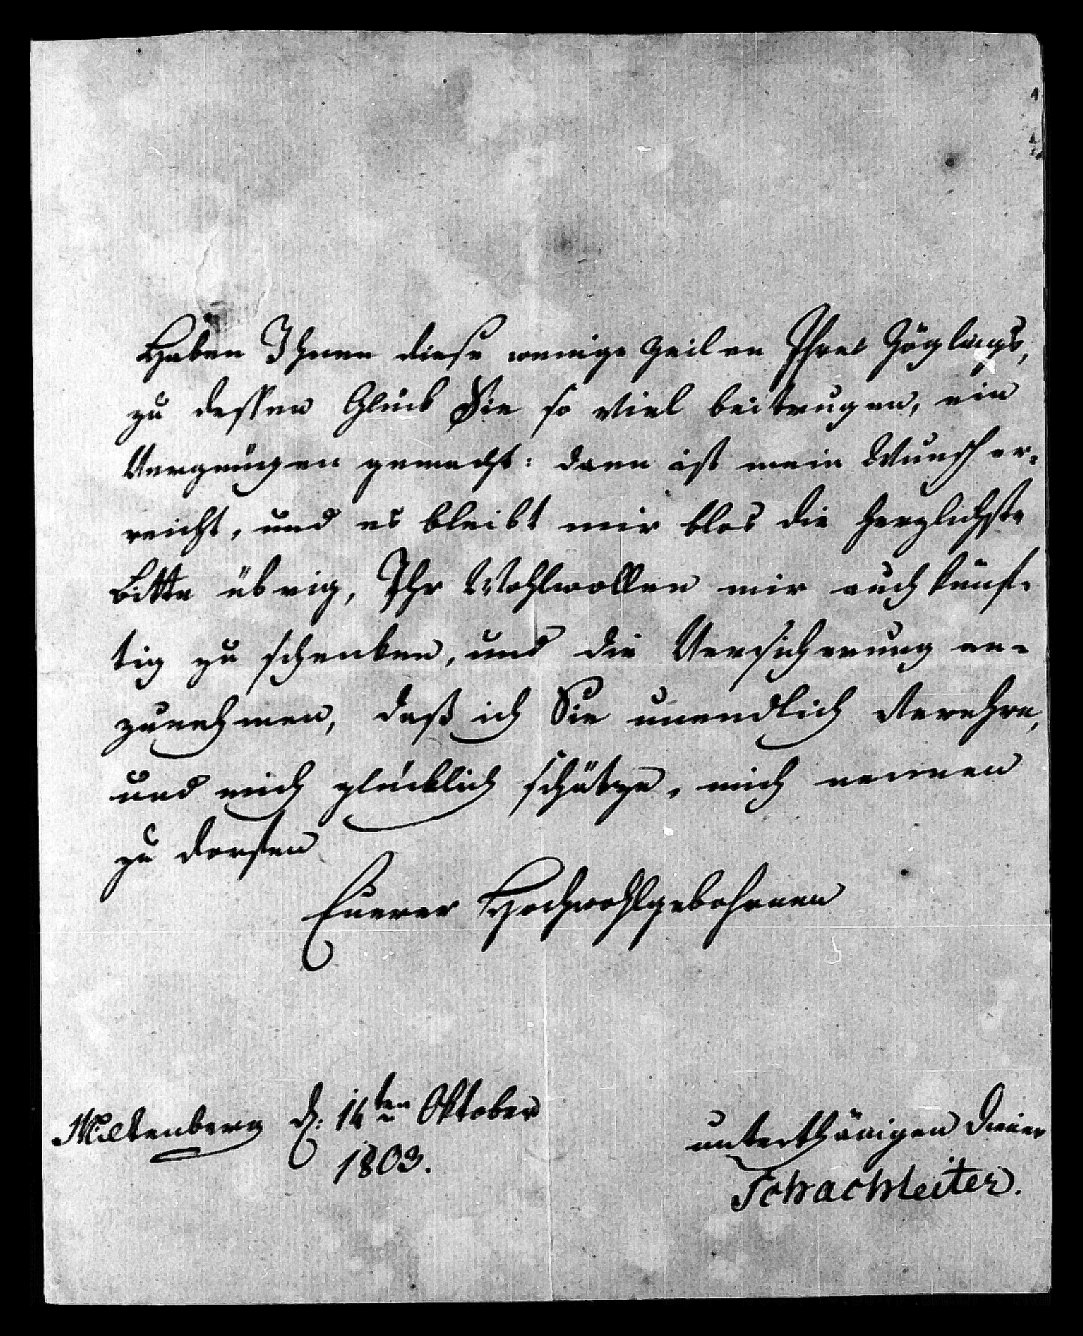 Haben Ihnen diese wenige Zeilen Ihres Zöglings,
zu dessen Glück Sie so viel beitrugen, ein
Vergnügen gemacht: dann ist mein Wunsch er-
reicht, und es bleibt mir blos die herzlichste
Bitte übrig, Ihr Wohlwollen mir auch künf-
tig zu schenken, und die Versicherung an-
zunehmen, daß ich Sie unendlich verehre,
und mich glücklich schätze, mich nennen
zu dorfen
Euerer Hochwohlgebohrnen
Miltenberg d: 14ten Oktober
1803.
unterthänigen Diener
Schachleiter.